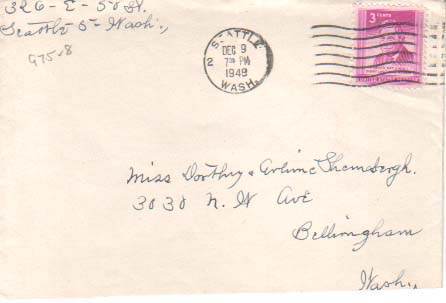 326 - E - 50 St.
Seattle 5 - Wash.,
975-8
SEATTLE
2
DEC 9
7 30 PM
1948
WASH.
3 CENTS
Miss Dorthy & Arline
3030 N. W Ave
Bellingham
Wash.,